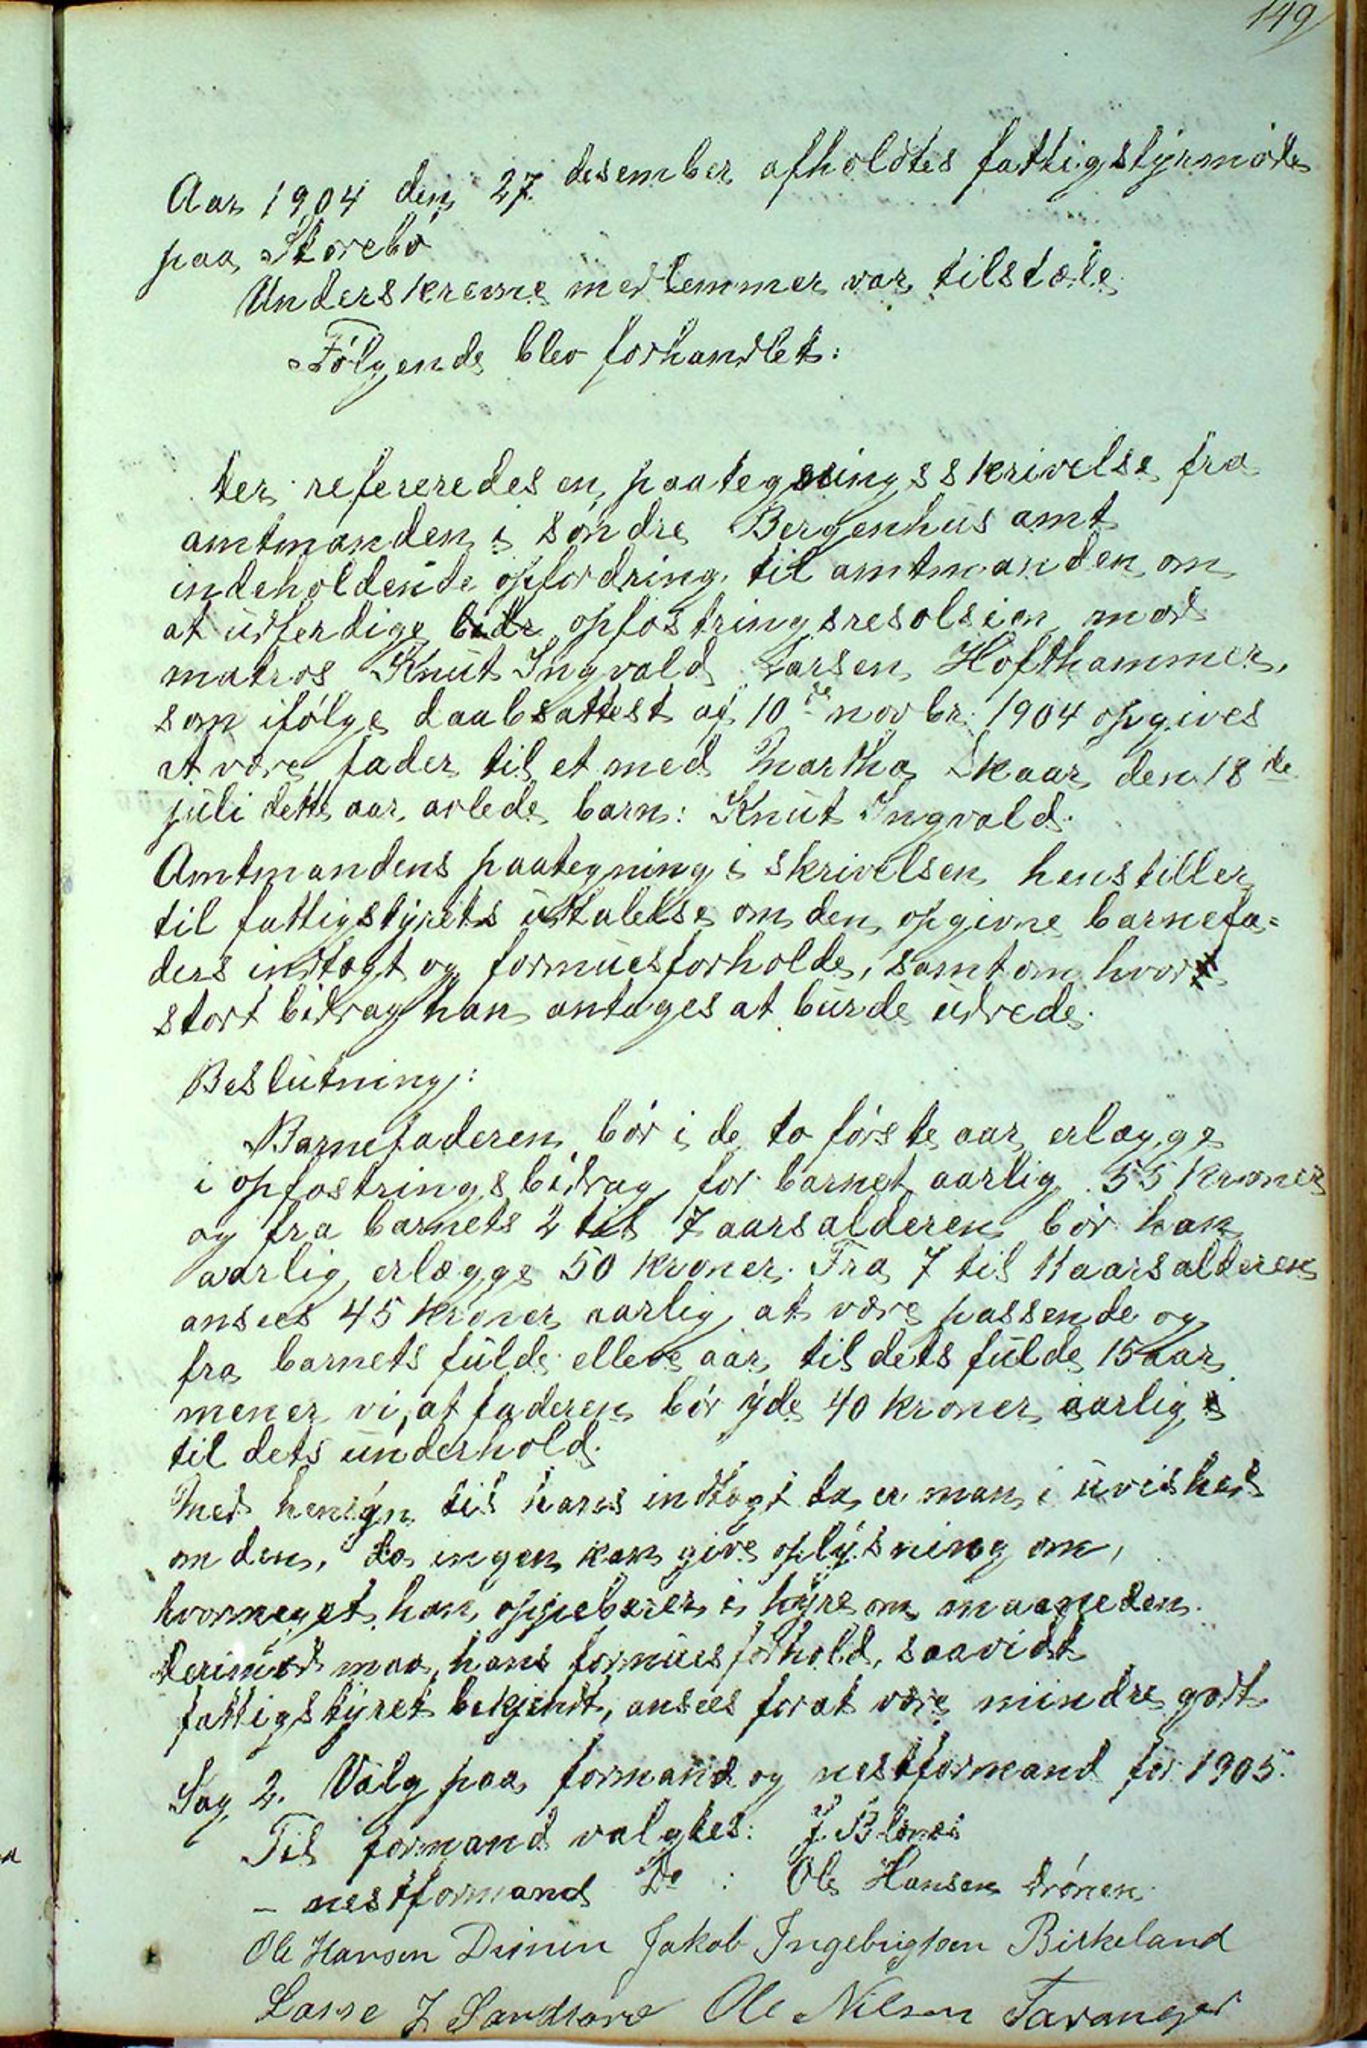 149
Aar 1904 den 27. desember afholdtes fattigstyrmøde
paa Skorebø
Underskrevne medlemmer var tilstæde.
Følgende blev forhandlet:
Der refereredes en paategningsskrivelse fra
amtmanden i søndre Bergenhus amt
indeholdende opfordring til amtmanden om
at udferdige opfostringsresolsion mod
matros Knut Ingvald Larsen Hofthammer,
som ifølge daabsattest af 10de novbr. 1904 opgives
at være fader til et med Martha Skaar den 18de
juli dette aar avlede barn: Knut Ingvald.
Amtmandens paategning i skrivelsen henstiller
til fattigstyrets udtalelse om den opgivne barnefa=
ders indtægt og formuesforholde, samt om hvor
stort bidrag han antages at burde udrede.
Beslutning:
Barnefaderen bør i de to første aar erlægge
i opfostringsbidrag for barnet aarlig 55 kroner
og fra barnets 2 til 7 aarsalderen bør han
aarlig erlægge 50 kroner. Fra 7 til 11 aarsalderen
ansees 45 kroner aarlig at være passende og
fra barnets fulde elleve aar til dets fulde 15 aar
mener vi, at faderen bør yde 40 kroner aarlig
til dets underhold.
Med hensyn til hans indtægt da er man i uvished
om den, da ingen kan give oplysning om,
hvormeget han oppebærer i hyre om maaneden.
Derimod maa hans formuesforhold, saavidt
fattigstyret bekjendt, ansees for at være mindre godt.
Sag 2. Valg paa formand og nestformand for 1905.
Til formand valgtes: J.
– nestformand Do : Ole Hansen Drønen.
Ole Hansen Drönen Jakob Ingebrigtsen Birkeland
Lasse J Ole Nilsen Taranger